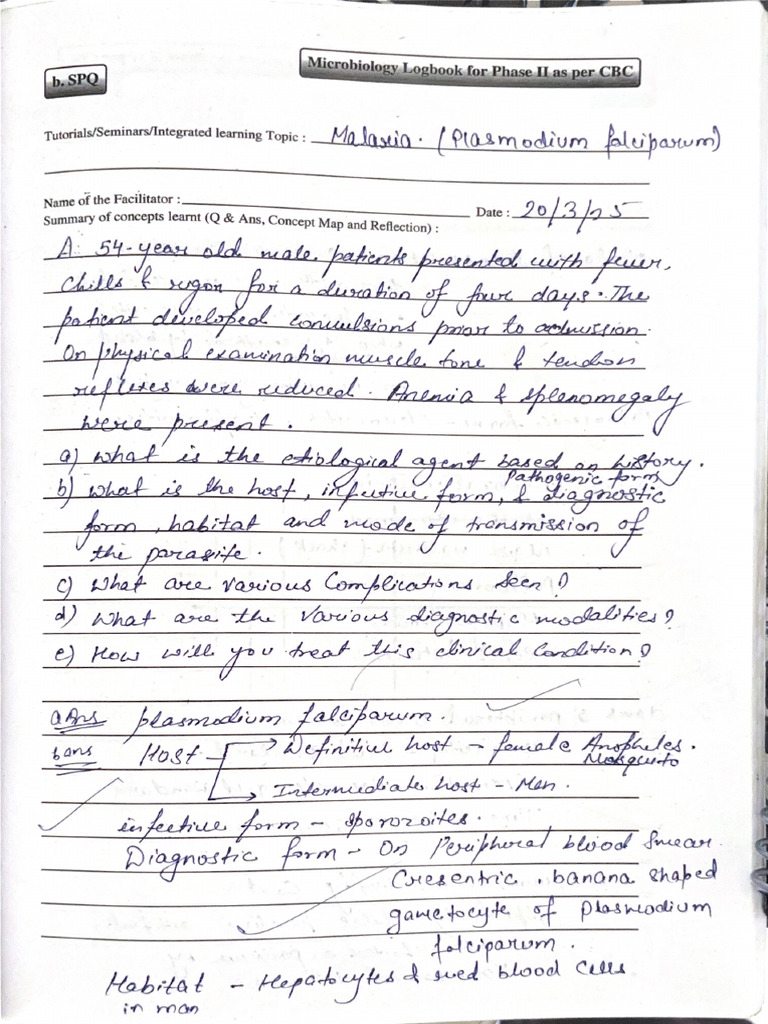 Microbiology Logbook for Phase II as per CBC
b. SPQ
Tutorials/Seminars/Integrated learning Topic : Malaria. (Plasmodium falciparum)
Name of the Facilitator :
Date : 20/3/25
Summary of concepts learnt (Q & Ans, Concept Map and Reflection) :
A 54-year old male patients presented with fever,
chills & rigor for a duration of four days. The
patient developed convulsions prior to admission.
On physical examination muscle tone & tendon
reflexes were reduced. Anemia & splenomegaly
were present.
a) What is the etiological agent based on history.
Pathogenic form
b) What is the host, infective form, & diagnostic
form, habitat and mode of transmission of
the parasite.
c) What are various Complications seen?
d) What are the various diagnostic modalities?
e) How will you treat this clinical condition?
a Ans plasmodium falciparum.
b ans Host → Definitive host - female Anopheles.
Mosquito
→ Intermediate host - Man.
infective form - sporozoites.
Diagnostic form - On Peripheral blood smear
Cresentric, banana shaped
gametocyte of plasmodium
falciparum.
Habitat - Hepatocytes & red blood cells
in man